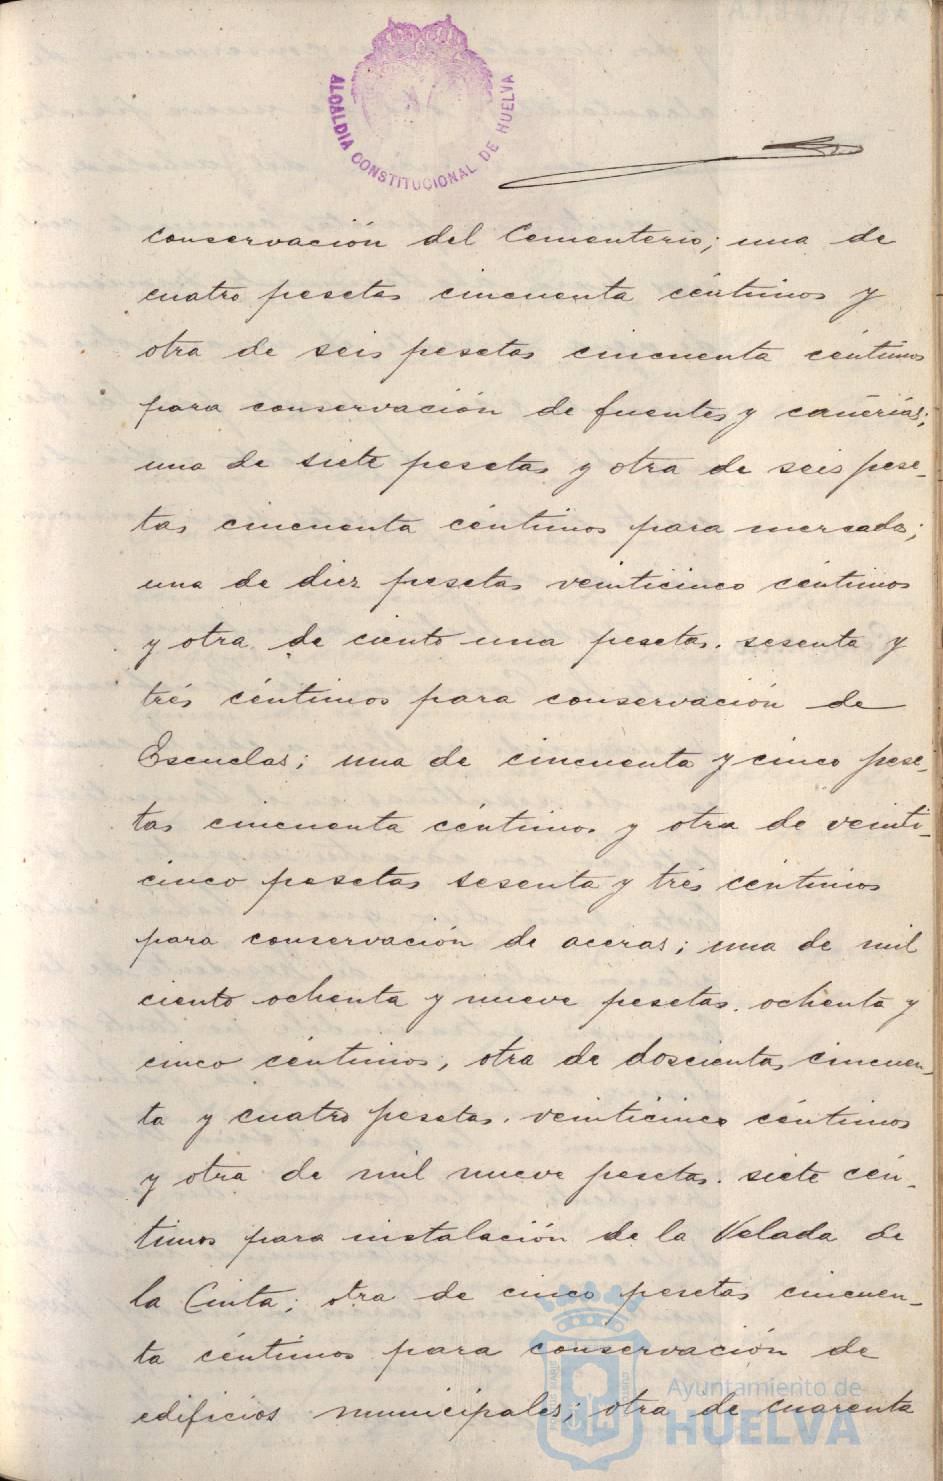 ALCALDIA CONSTITUCIONAL DE HUELVA
conservación del Cementerio; una de
cuatro pesetas cincuenta céntimos y
otra de seis pesetas cincuenta céntimos
para conservación de fuentes y cañerías;
una de siete pesetas y otra de seis pese-
tas cincuenta céntimos para mercados;
una de diez pesetas veinticinco céntimos
y otra de ciento una pesetas. sesenta y
trés céntimos para conservación de
Escuelas; una de cincuenta y cinco pese-
tas cincuenta céntimos y otra de veinti-
cinco pesetas sesenta y trés céntimos
para conservación de aceras; una de mil
ciento ochenta y nueve pesetas. ochenta y
cinco céntimos, otra de doscientas cincuen-
ta y cuatro pesetas. veinticinco céntimos
y otra de mil nueve pesetas. siete cén-
timos para instalación de la Velada de
la Cinta; otra de cinco pesetas cincuen-
ta céntimos para conservación de
edificios municipales; otra de cuarenta
Ayuntamiento de
HUELVA